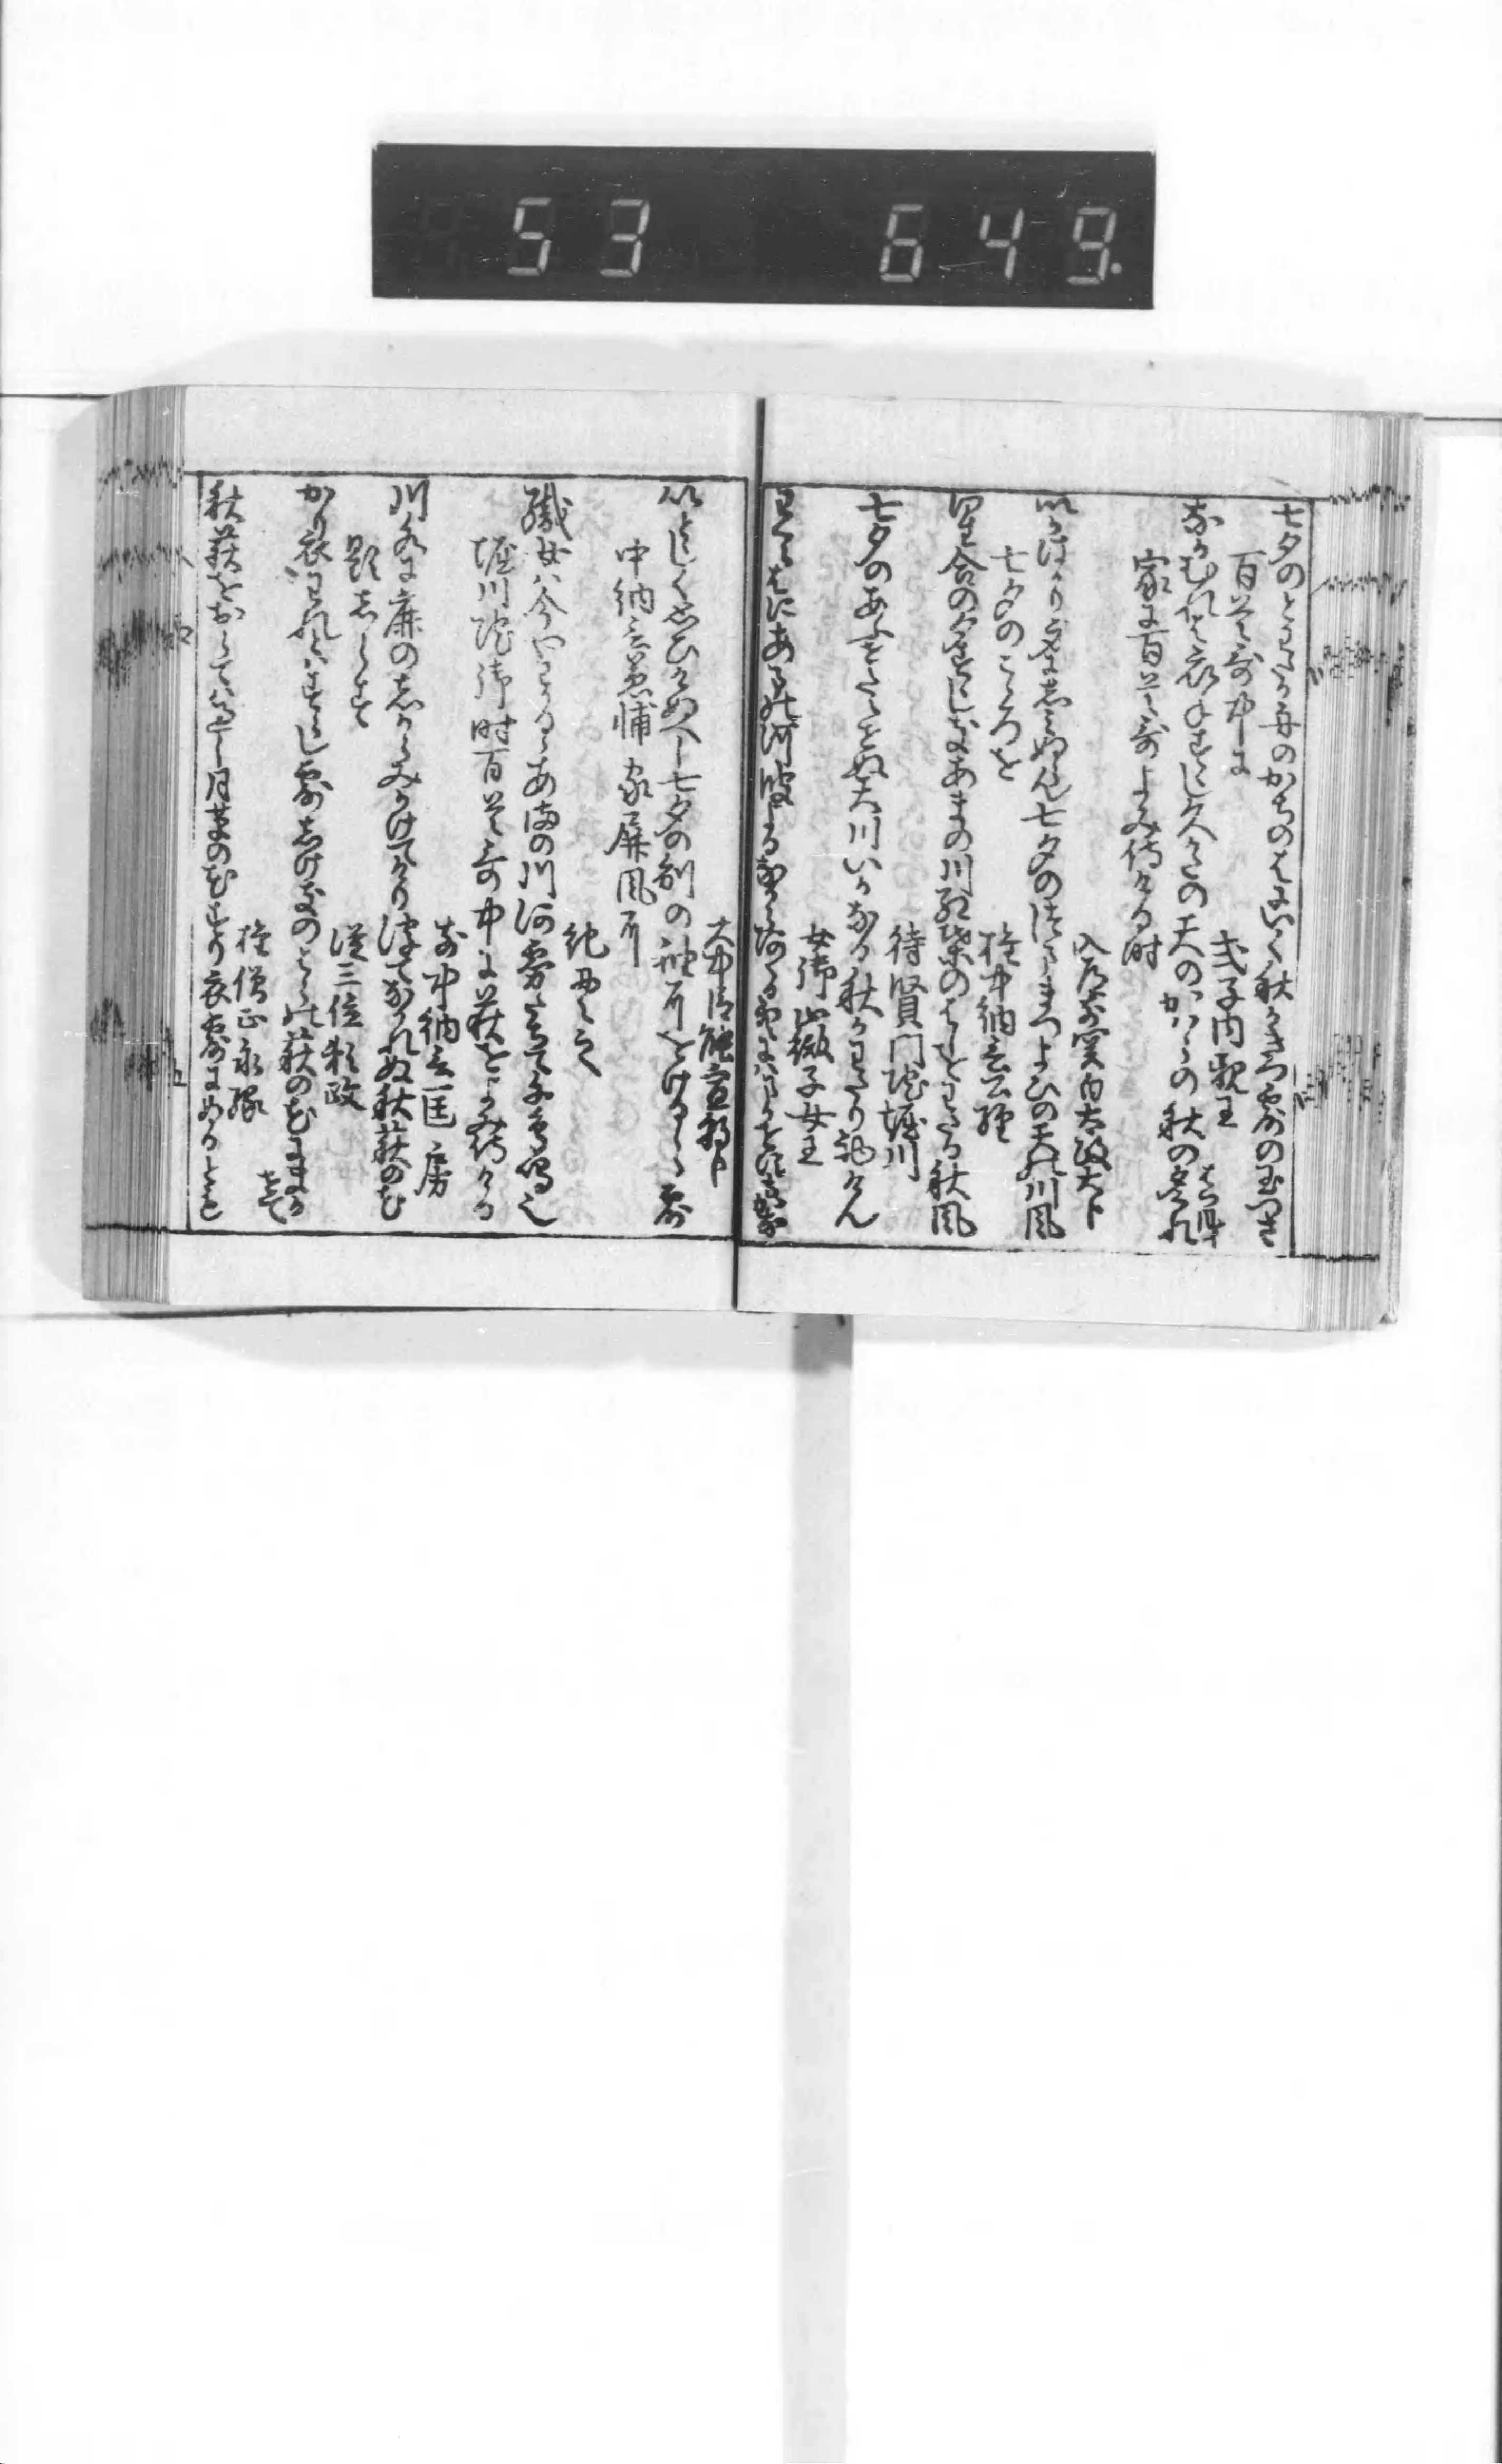 53 649.
七夕のとわたる舟のかちのはにいく秋かきつ露の玉つさ
百首哥中に
式子内親王
なかむれは衣手すゝし久かたの天のかはらの秋の夕くれ
家に百首哥よみ侍ける時
入道前関白太政大臣
いかはかり身にしみぬらん七夕のつままつよひの天の川風
七夕のこゝろを
権中納言公経
星合の夕すゝしきあまの川紅葉のはしをわたる秋風
待賢門院堀川
七夕のあふせたえせぬ天川いかなる秋かわたり初けん
女御徽子女王
わくらはにあまの河波よるなからあくる空にはまかせすもかな
大中臣能宣朝臣
いとゝしく思ひけぬへし七夕の別の袖にをける白露
中納言兼輔家屏風に
紀貫之
織女は今やわかるゝあまの川河霧たちて千鳥鳴也
堀川院御時百首哥中に萩をよみ侍ける
前中納言匡房
川水に鹿のしからみかけてけり浮てなかれぬ秋萩のはな
題しらす
従三位頼政
かり衣われとはすらし露しけきのはらの萩の花にまかせて
権僧正永縁
秋萩をおらては過し月草の花すり衣露にぬるとも